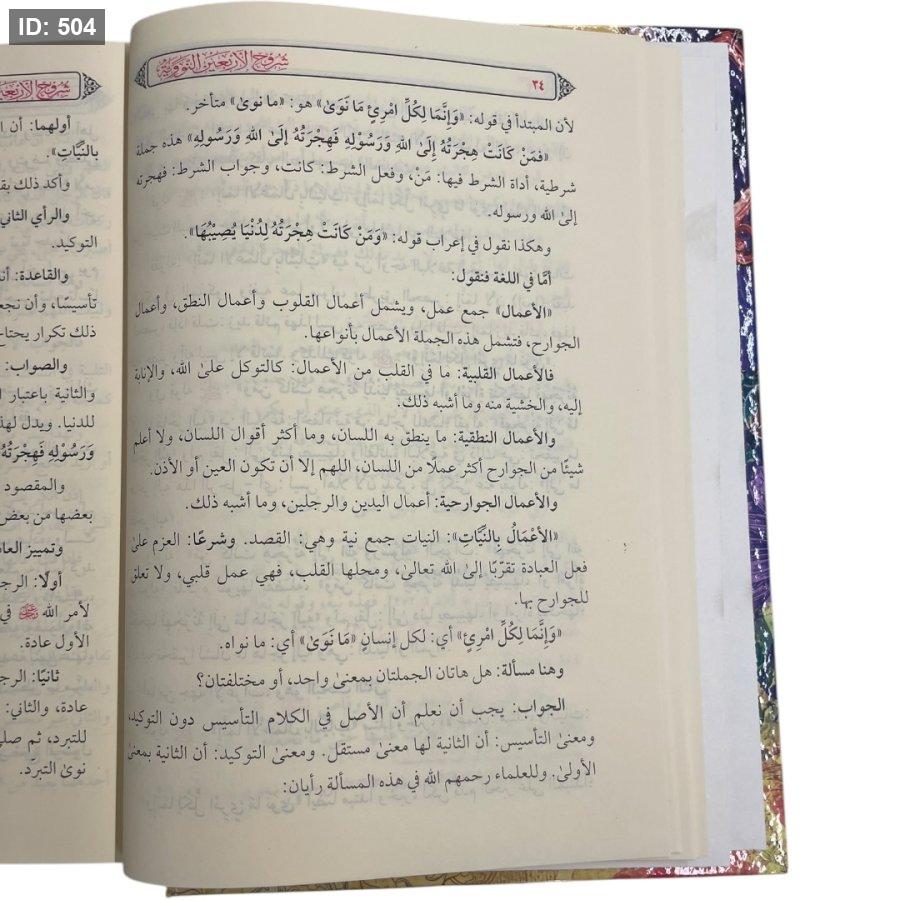 ID: 504
شروح الأربعين النووية
٣٤
لأن المبتدأ في قوله: «وَإِنَّمَا لِكُلِّ امْرِئٍ مَا نَوَىٰ» هو: «ما نوىٰ» متأخر.
«فَمَنْ كَانَتْ هِجْرَتُهُ إِلَىٰ اللهِ وَرَسُوْلِهِ فَهِجْرَتُهُ إِلَىٰ اللهِ وَرَسُولِهِ» هذه جملة
شرطية، أداة الشرط فيها: مَنْ، وفعل الشرط: كانت، وجواب الشرط: فهجرته
إلىٰ الله ورسوله.
وهكذا نقول في إعراب قوله: «وَمَنْ كَانَتْ هِجْرَتُهُ لِدُنْيَا يُصِيْبُهَا».
أمَّا في اللغة فنقول:
«الأعمال» جمع عمل، ويشمل أعمال القلوب وأعمال النطق، وأعمال
الجوارح، فتشمل هذه الجملة الأعمال بأنواعها.
فالأعمال القلبية: ما في القلب من الأعمال: كالتوكل علىٰ الله، والإنابة
إليه، والخشية منه وما أشبه ذلك.
والأعمال النطقية: ما ينطق به اللسان، وما أكثر أقوال اللسان، ولا أعلم
شيئًا من الجوارح أكثر عملًا من اللسان، اللهم إلا أن تكون العين أو الأذن.
والأعمال الجوارحية: أعمال اليدين والرجلين، وما أشبه ذلك.
«الأعْمَالُ بِالنِّيَّاتِ»: النيات جمع نية وهي: القصد. وشرعًا: العزم علىٰ
فعل العبادة تقرّبًا إلىٰ الله تعالىٰ، ومحلها القلب، فهي عمل قلبي، ولا تعلق
للجوارح بها.
«وَإِنَّمَا لِكُلِّ امْرِئٍ» أي: لكل إنسانٍ «مَا نَوَىٰ» أي: ما نواه.
وهنا مسألة: هل هاتان الجملتان بمعنىٰ واحد، أو مختلفتان؟
الجواب: يجب أن نعلم أن الأصل في الكلام التأسيس دون التوكيد،
ومعنىٰ التأسيس: أن الثانية لها معنىٰ مستقل. ومعنىٰ التوكيد: أن الثانية بمعنىٰ
الأولىٰ. وللعلماء رحمهم الله في هذه المسألة رأيان:
شروح الأربعين
أولهما: أن
بالنِّيَّاتِ».
وأكد ذلك
والرأي الثاني
التوكيد.
والقاعدة:
تأسيسًا، وأن
ذلك تكرار يحتاج
والصواب:
والثانية باعتبار
للدنيا. ويدل لهذا
وَرَسُولِهِ فَهِجْرَتُهُ
والمقصود
بعضها من بعض
وتمييز
أولًا: الرجل
لأمر الله ﷻ في
الأول عادة.
ثانيًا: الرجل
عادة، والثاني:
للتبرد، ثم
نوىٰ التبرّد.